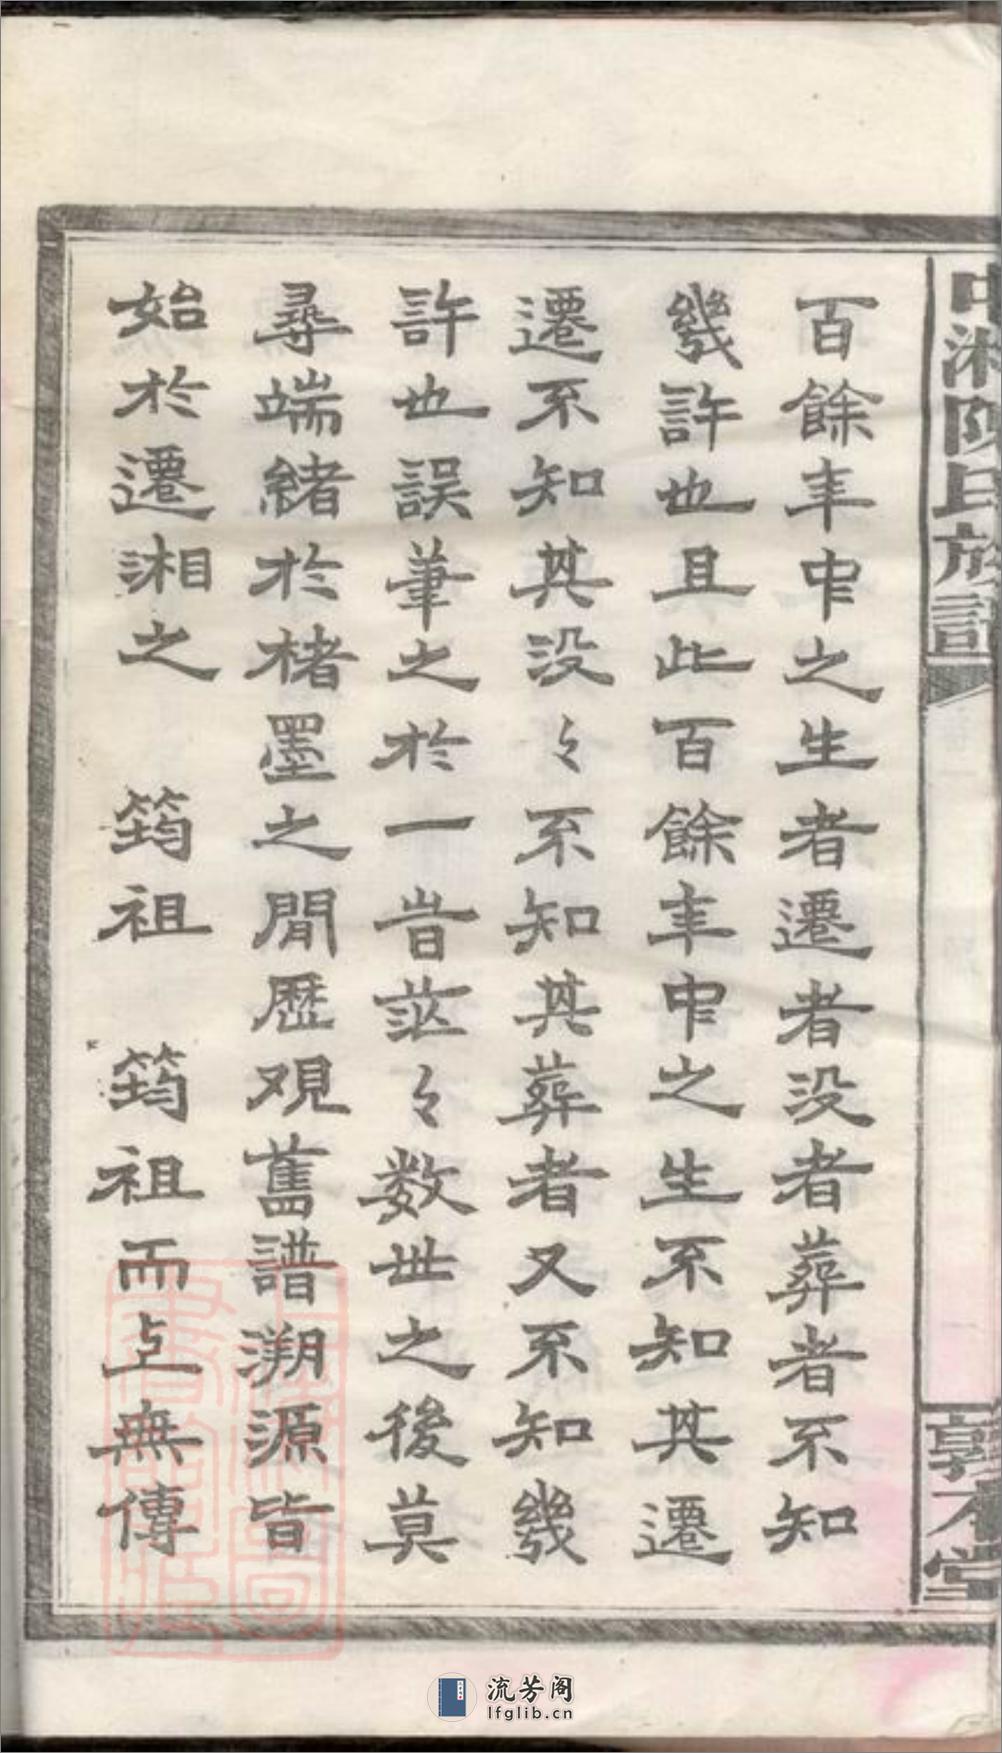 中湘陳氏族譜
敦本堂
百餘年中之生者遷者没者葬者不知
幾許也且此百餘年中之生不知其遷
遷不知其没々不知其葬者又不知幾
許也誤筆之於一旹茫々数世之後莫
尋端緒於楮墨之間歷观舊譜溯源皆
始於遷湘之 筠祖 筠祖而上無傳
上海圖
書館藏
流芳阁
lfglib.cn